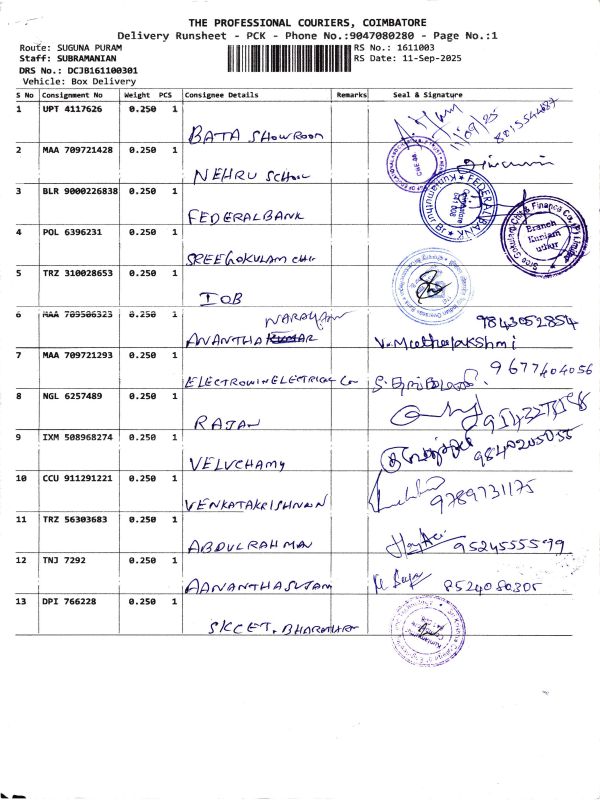 THE PROFESSIONAL COURIERS, COIMBATORE
Delivery Runsheet - PCK - Phone No.:9047080280 - Page No.:1
Route: SUGUNA PURAM
RS No.: 1611003
Staff: SUBRAMANIAN
RS Date: 11-Sep-2025
DRS No.: DCJB161100301
Vehicle: Box Delivery
S No Consignment No Weight PCS Consignee Details Remarks Seal & Signature
1 UPT 4117626 0.250 1
BATA SHOWROOM
11/09/25
2 MAA 709721428 0.250 1
NEHRU SCHOOL
3 BLR 9000226838 0.250 1
FEDERAL BANK
FEDERAL BANK
Coimbatore
641 008
4 POL 6396231 0.250 1
SREE GOKULAM CHIT
Branch
Kuniam
uthur
5 TRZ 310028653 0.250 1
IOB
6 MAA 709506323 0.250 1
NARAYAN
ANANTHA KUMAR
9843052854
V. Muthulakshmi
7 MAA 709721293 0.250 1
ELECTROWIN ELECTRICAL Co
9677404056
8 NGL 6257489 0.250 1
RAJAN
9 IXM 508968274 0.250 1
VELUCHAMY
9840205055
10 CCU 911291221 0.250 1
VENKATAKRISHNAN
9789731175
11 TRZ 56303683 0.250 1
ABDULRAHMAN
9524555599
12 TNJ 7292 0.250 1
AANANTHASUJAM
8524080305
13 DPI 766228 0.250 1
SKCET, BHARATHI